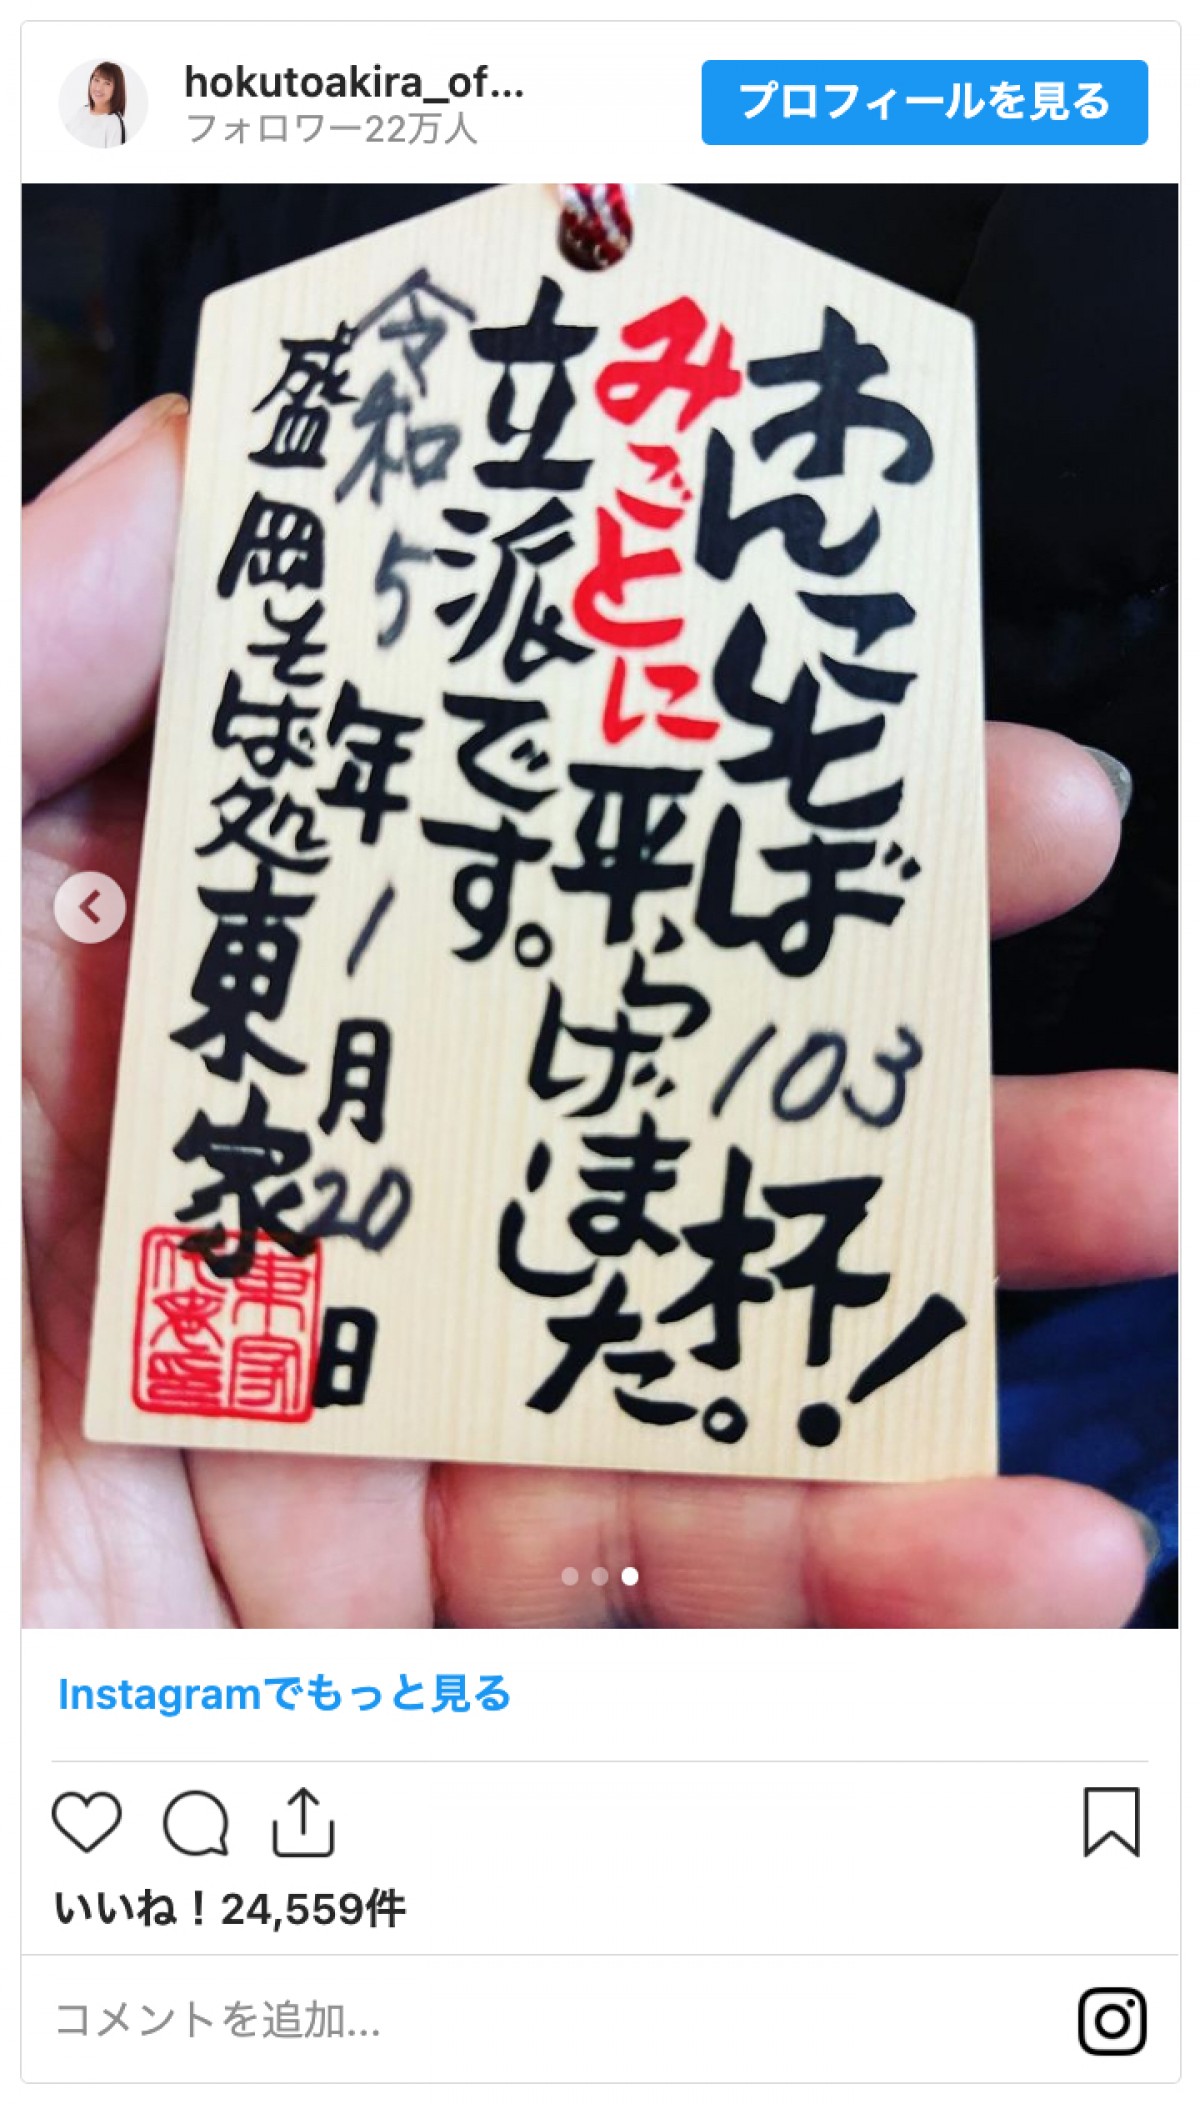 hokutoakira_of...
フォロワー22万人
プロフィールを見る
わんこそば103杯!
みごとに平らげました。
立派です。
令和5年1月20日
盛岡そば処東家
Instagramでもっと見る
いいね！24,559件
コメントを追加...